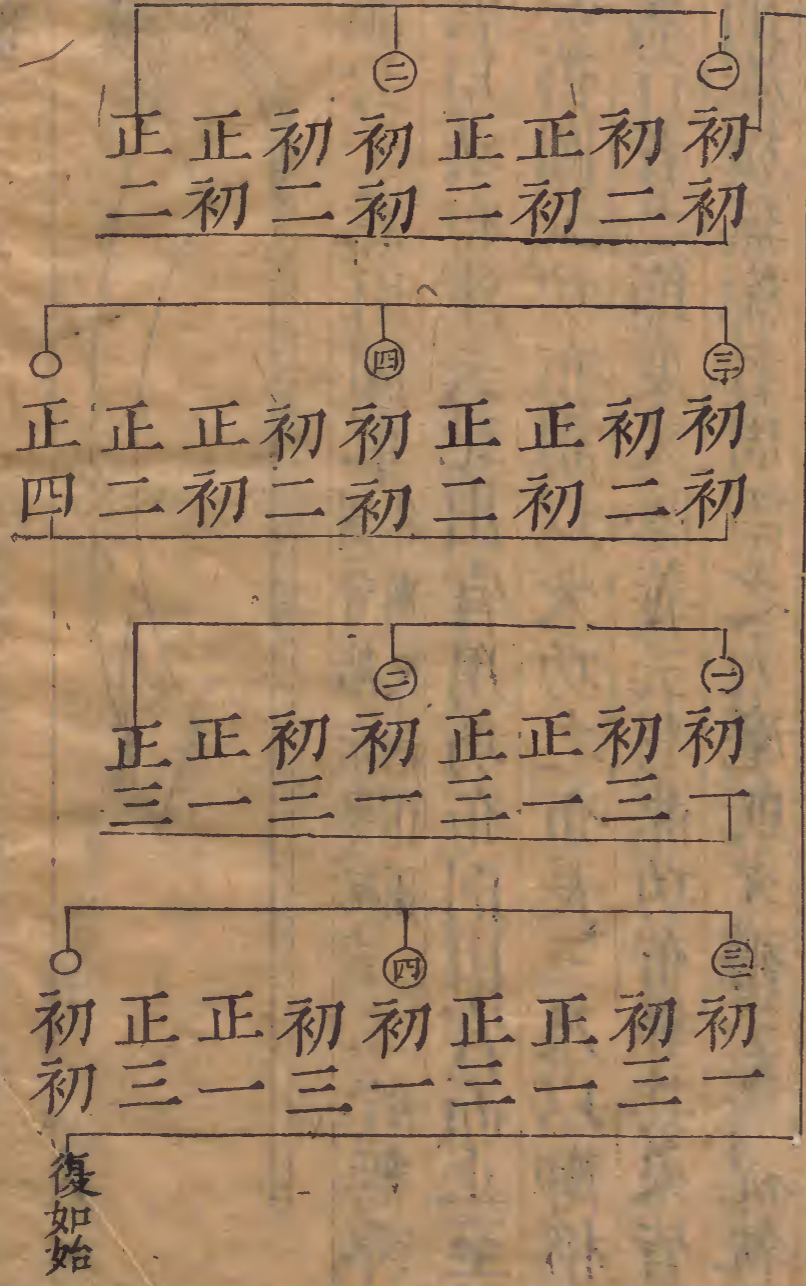 ㊀初初
初二
正初
正二
㊁初初
初二
正初
正二
㊂初初
初二
正初
正二
㊃初初
初二
正初
正二
○正四
㊀初一
初三
正一
正三
㊁初一
初三
正一
正三
㊂初一
初三
正一
正三
㊃初一
初三
正一
正三
○初初
復如始